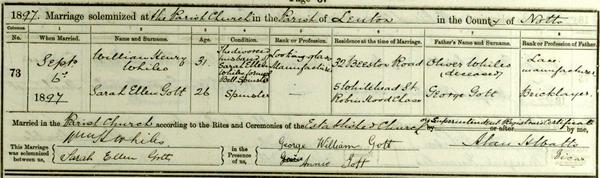 1897. Marriage solemnized at the Parish Church in the Parish of Lenton in the County of Notts
Columns
When Married. Name and Surname. Age. Condition. Rank or Profession. Residence at the time of Marriage. Father's Name and Surname. Rank or Profession of Father.
73
Sept. 6th 1897
William Henry Whiles 31 The divorced husband of Sarah Ellen Whiles formerly Bell Spinster Looking glass Manufacturer 32 Beeston Road Oliver Whiles (deceased) Lace manufacturer
Sarah Ellen Gott 26 Spinster — 5 Whitehead St. Robin Hood Chase George Gott Bricklayer
Married in the Parish Church according to the Rites and Ceremonies of the Established Church by or after by me,
This Marriage was solemnized between us, Wm H Whiles
Sarah Ellen Gott
in the Presence of us, George William Gott
Annie Gott
Vicar